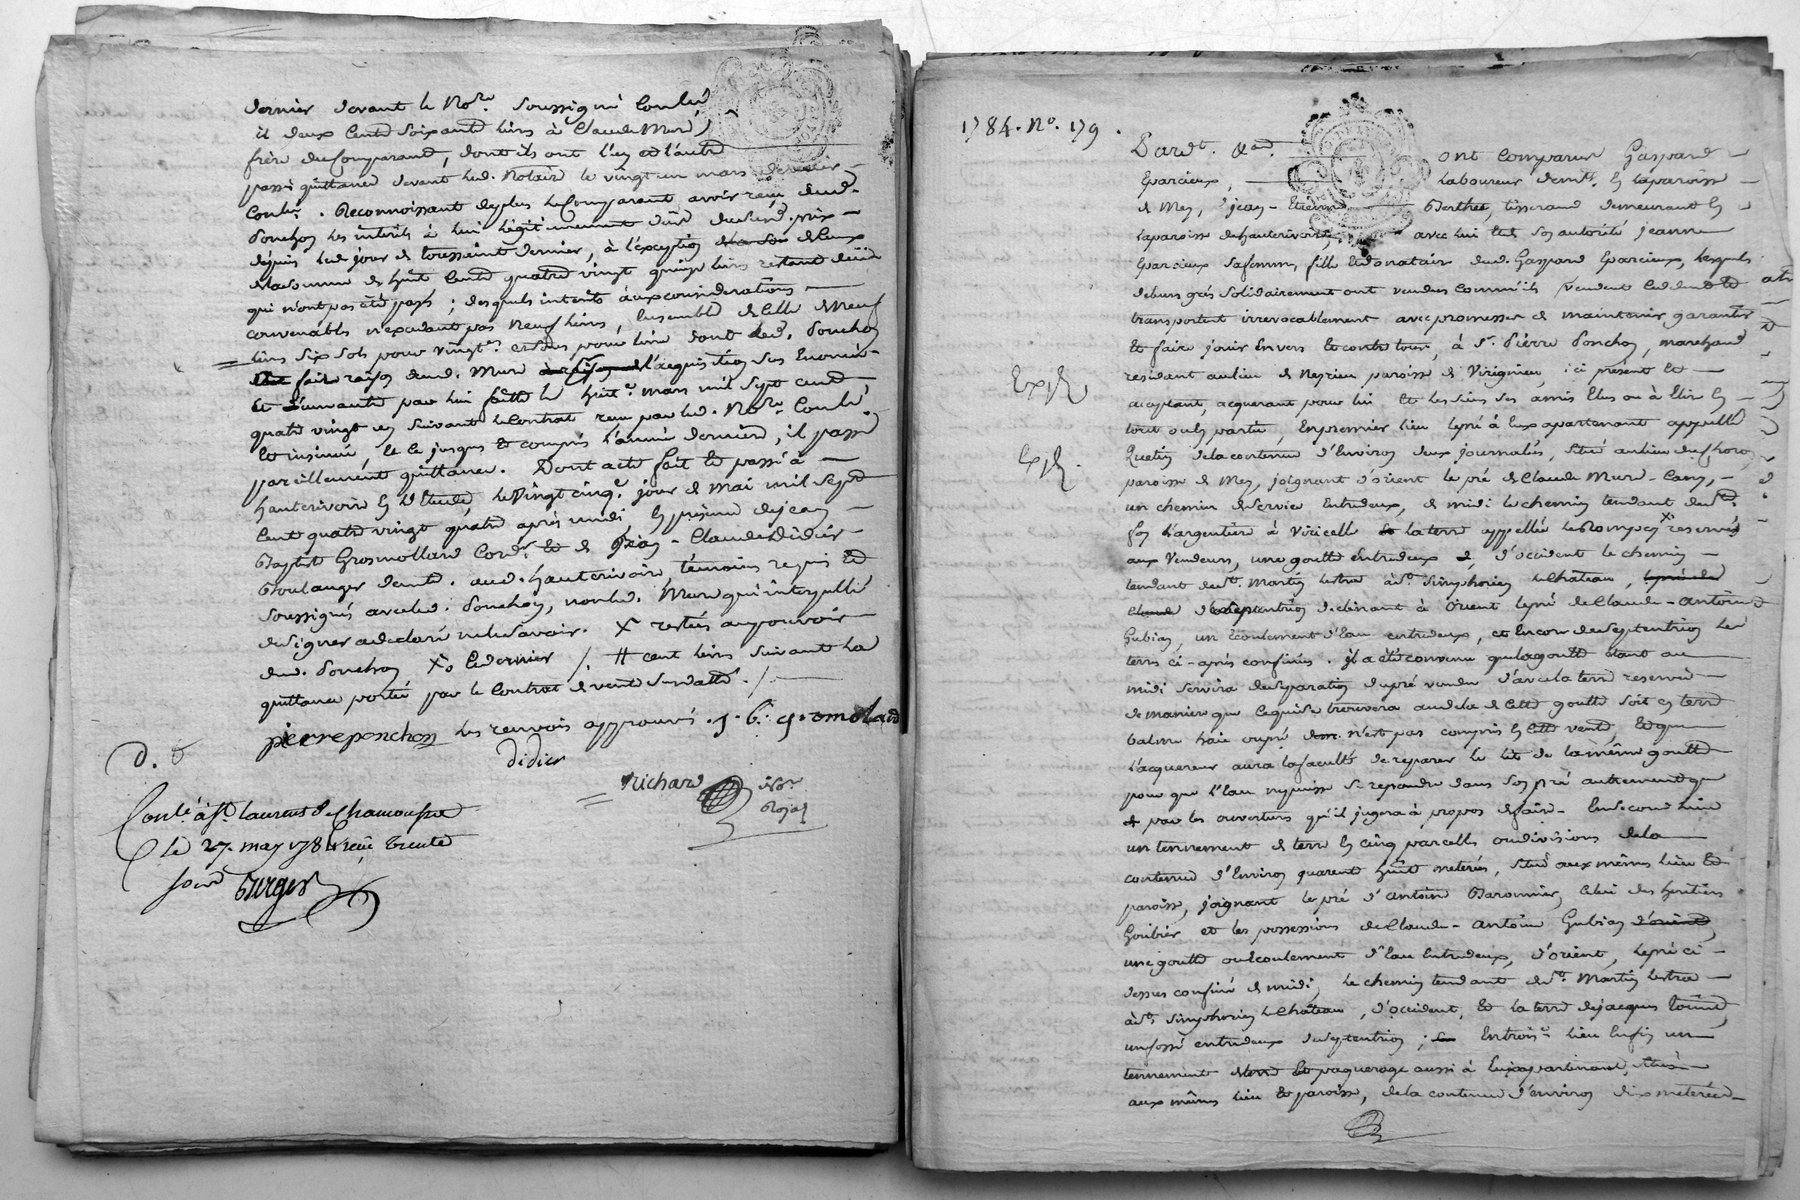 dernier devant le No.re soussigné Conlé
il deux Cents soixante livres à Claude Mure
frère du Comparant, dont ils ont l'un et l'autre
passé quittance devant led. Notaire le vingt un mars dernier
Conlé. Reconnoissant de plus le Comparant avoir reçu dud.
Ponchon les interêts à lui légitimement dûs dud. prix
depuis led. jour de toussaint dernier, à l'exception de ceux
de la somme de huit Cents quatre vingt quinze livres restant
qui n'ont pas été payés ; desquels interêts aux considerations
convenables n'excedant pas neuf livres, ensemble de celle de neuf
livres six sols pour vingt.e et sols pour livre dont led. Ponchon
fait raison aud. Mure l'acquisition
par lui faitte le huit.e mars mil sept cent
quatre vingt un suivant le Contrat reçu par led. No.re Conlé
et insinué, et ce jusques et compris l'année derniere, il passe
pareillement quittance. Dont acte fait et passé à
hauterivoire en l'Etude, le vingt cinq.e jour de Mai mil sept
Cent quatre vingt quatre après midi, en présence de jean
Baptiste Grosmollard Cord.r et de Claude Didier
Boulanger dem.t aud. hauterivoire témoins requis et
soussignés avec led. Ponchon, non led. Mure qui interpellé
de signer a declaré ne le savoir. X restées au pouvoir
dud. Ponchon X le dernier /. # cent livres suivant la
quittance portée par le Contrat de vente susdatté ./.
pierre ponchon les renvois approuvés . j. b. gromolard
didier
D. G
Richard No.re Royal
Conlé à St. laurent de Chamousset
le 27. may 1784 reçu trente
sols
1784. No. 179.
Pardt. &ad. ont comparus Gaspard
Eparcieux, laboureur demt. en la paroisse
de Mey, jean-Etienne Berthet, tisserand demeurant en
la paroisse de hauterivoire, avec lui et de son autorité jeanne
Eparcieux sa femme, fille et donataire dud. Gaspard Eparcieux, lesquels
de leurs grés solidairement ont vendu comme ils vendent cedent et
transportent irrevocablement avec promesses de maintenir garantir
et faire jouir envers et contre tous, à Sr. Pierre Ponchon, marchand
Expé
résidant au lieu de Neyrieu paroisse de Virigneu, ici présent et
acceptant, acquerant pour lui et les siens ses amis Elus ou à Elire en
tout ou en partie, En premier lieu le pré à Eux apartenant appellé
Expé.
Quetin de la contenue d'Environ deux journaliés, situé au lieu
paroisse de Mey, joignant d'orient le pré de Claude Mure-Cany,
un chemin de service entredeux, de midi le chemin tendant de St.
foy l'argentière à Viricelle et la terre appellée reservée
aux Vendeurs, une goutte entredeux, d'occident le chemin
tendant de St. Martin lestra à St. Simphorien le Château,
de septentrion declinant à orient le pré de Claude-Antoine
Gubian, un écoulement d'Eau entredeux, et encore de septentrion les
terres ci-après confinées. il a été convenu que la goutte étant au
midi servira de separation du pré vendu d'avec la terre reservée
de maniere que ce qui se trouvera audela de cette goutte soit en terre
balme haie ou pré n'est pas compris en cette vente, et que
l'acquereur aura la faculté de reparer le lit de la même goutte
pour que l'Eau ne puisse se repandre dans son pré autrement que
par les ouvertures qu'il jugera à propos de faire. En second lieu
un tennement de terre en cinq parcelles ou divisions de la
contenue d'Environ quarente huit meterées, situé aux mêmes lieu et
paroisse, joignant le pré d'Antoine Baronnier, celui des héritiers
Goubier et les possessions de Claude-Antoine Gubian
une goutte ou écoulement d'Eau Entredeux, d'orient, le pré ci-
dessus confiné de midi, le chemin tendant de St. Martin lestra
à St. Simphorien le Château, d'occident, et la terre de jacques
un fossé entredeux de septentrion ; En trois.e lieu Enfin un
tennement paquerage aussi à Eux apartenant, situé
aux mêmes lieu et paroisse, de la contenue d'environ dix meterées